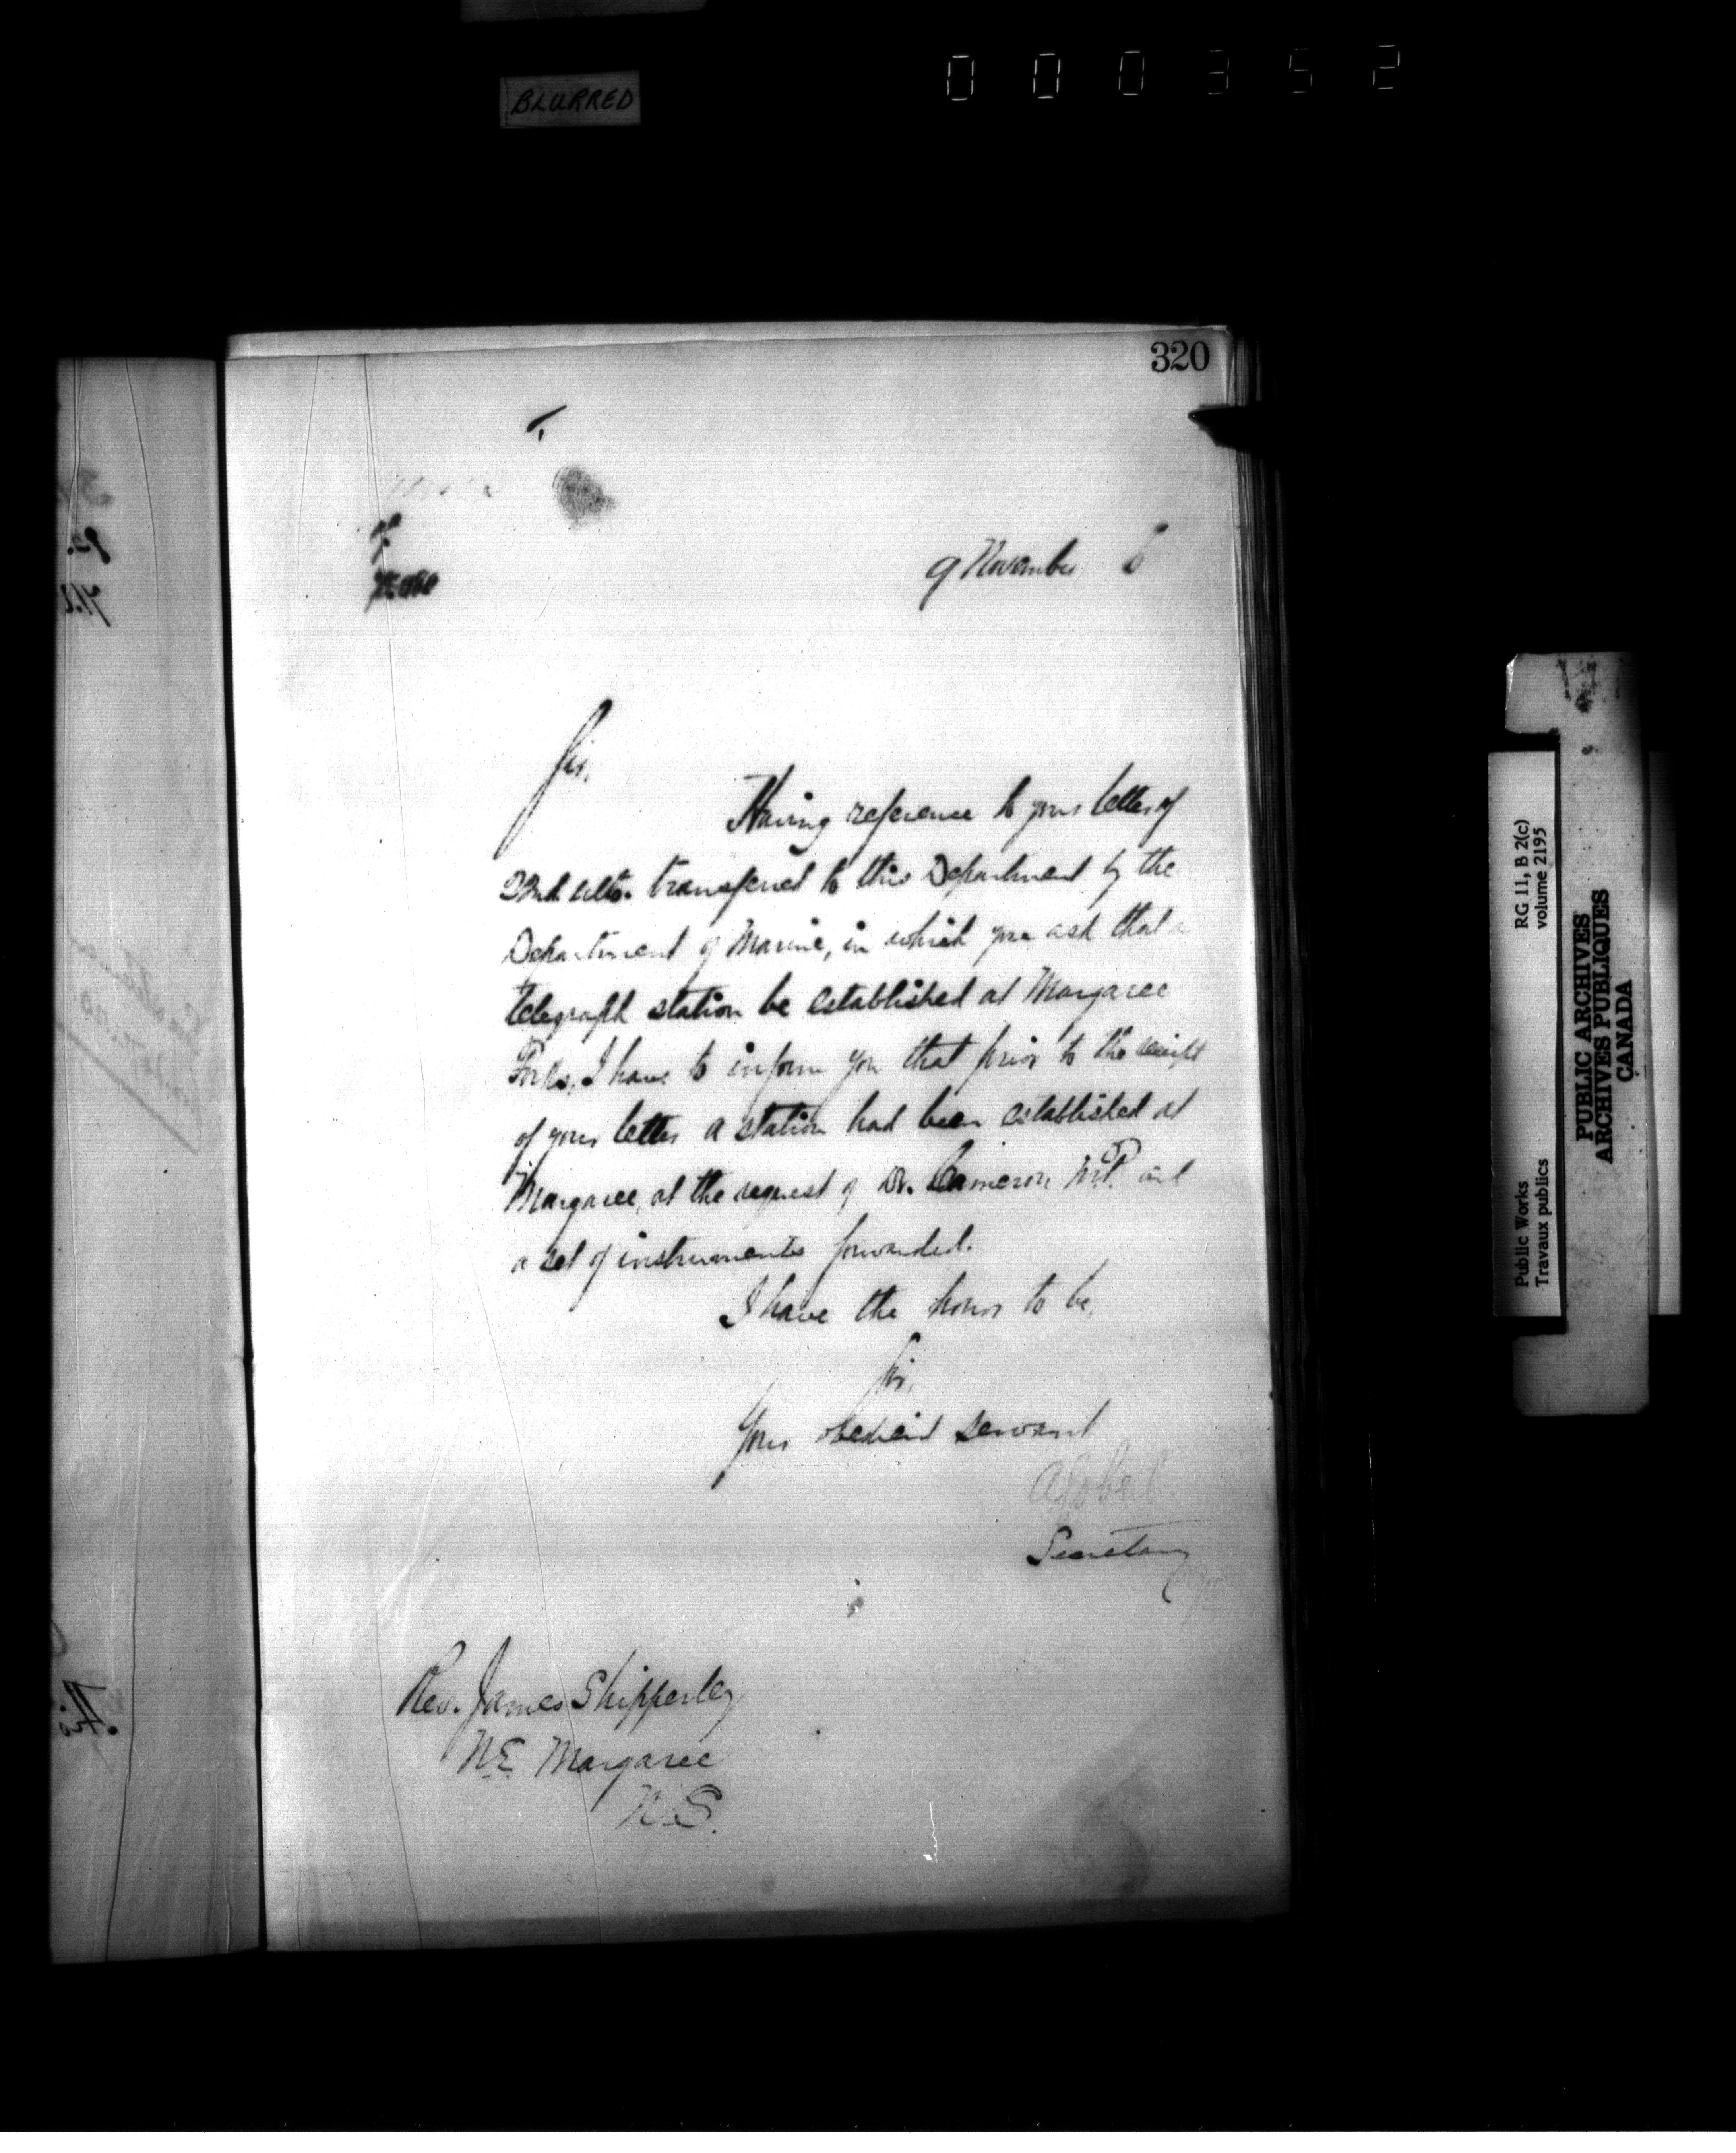 BLURRED
000352
320
9 November 6
Sir,
Having reference to your letter of
22nd ulto. transferred to this Department by the
Department of Marine, in which you ask that a
telegraph station be established at Margaree
Forks, I have to inform you that prior to the receipt
of your letter a station had been established at
Margaree, at the request of Dr. Cameron M.P. and
a set of instruments forwarded.
I have the honor to be,
Sir,
Your obedient servant
A Gobeil
Secretary
Rev. James Shipperley
N.E. Margaree
N.S.
RG 11, B 2(c)
volume 2195
Public Works
Travaux publics
PUBLIC ARCHIVES
ARCHIVES PUBLIQUES
CANADA